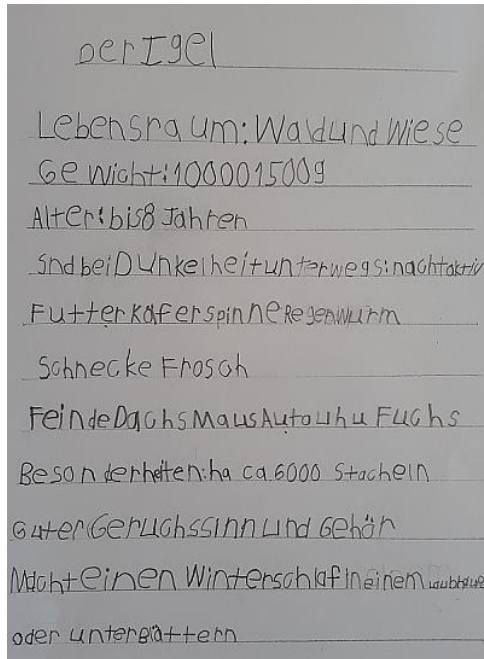 Der Igel
Lebensraum: Wald und Wiese
Gewicht: 1000015009
Alter: bis 8 Jahren
Snd bei Dunkelheit unterwegs: nachtaktiv
Futter Kafer spinne Regenwurm
Schnecke Frosch
Feinde Dachs Maus Auto uhu Fuchs
Besonderheten: ha ca. 6000 Stacheln
Guter Geruchssinn und Gehör
Macht einen Winterschlaf in einem
oder unter Blättern